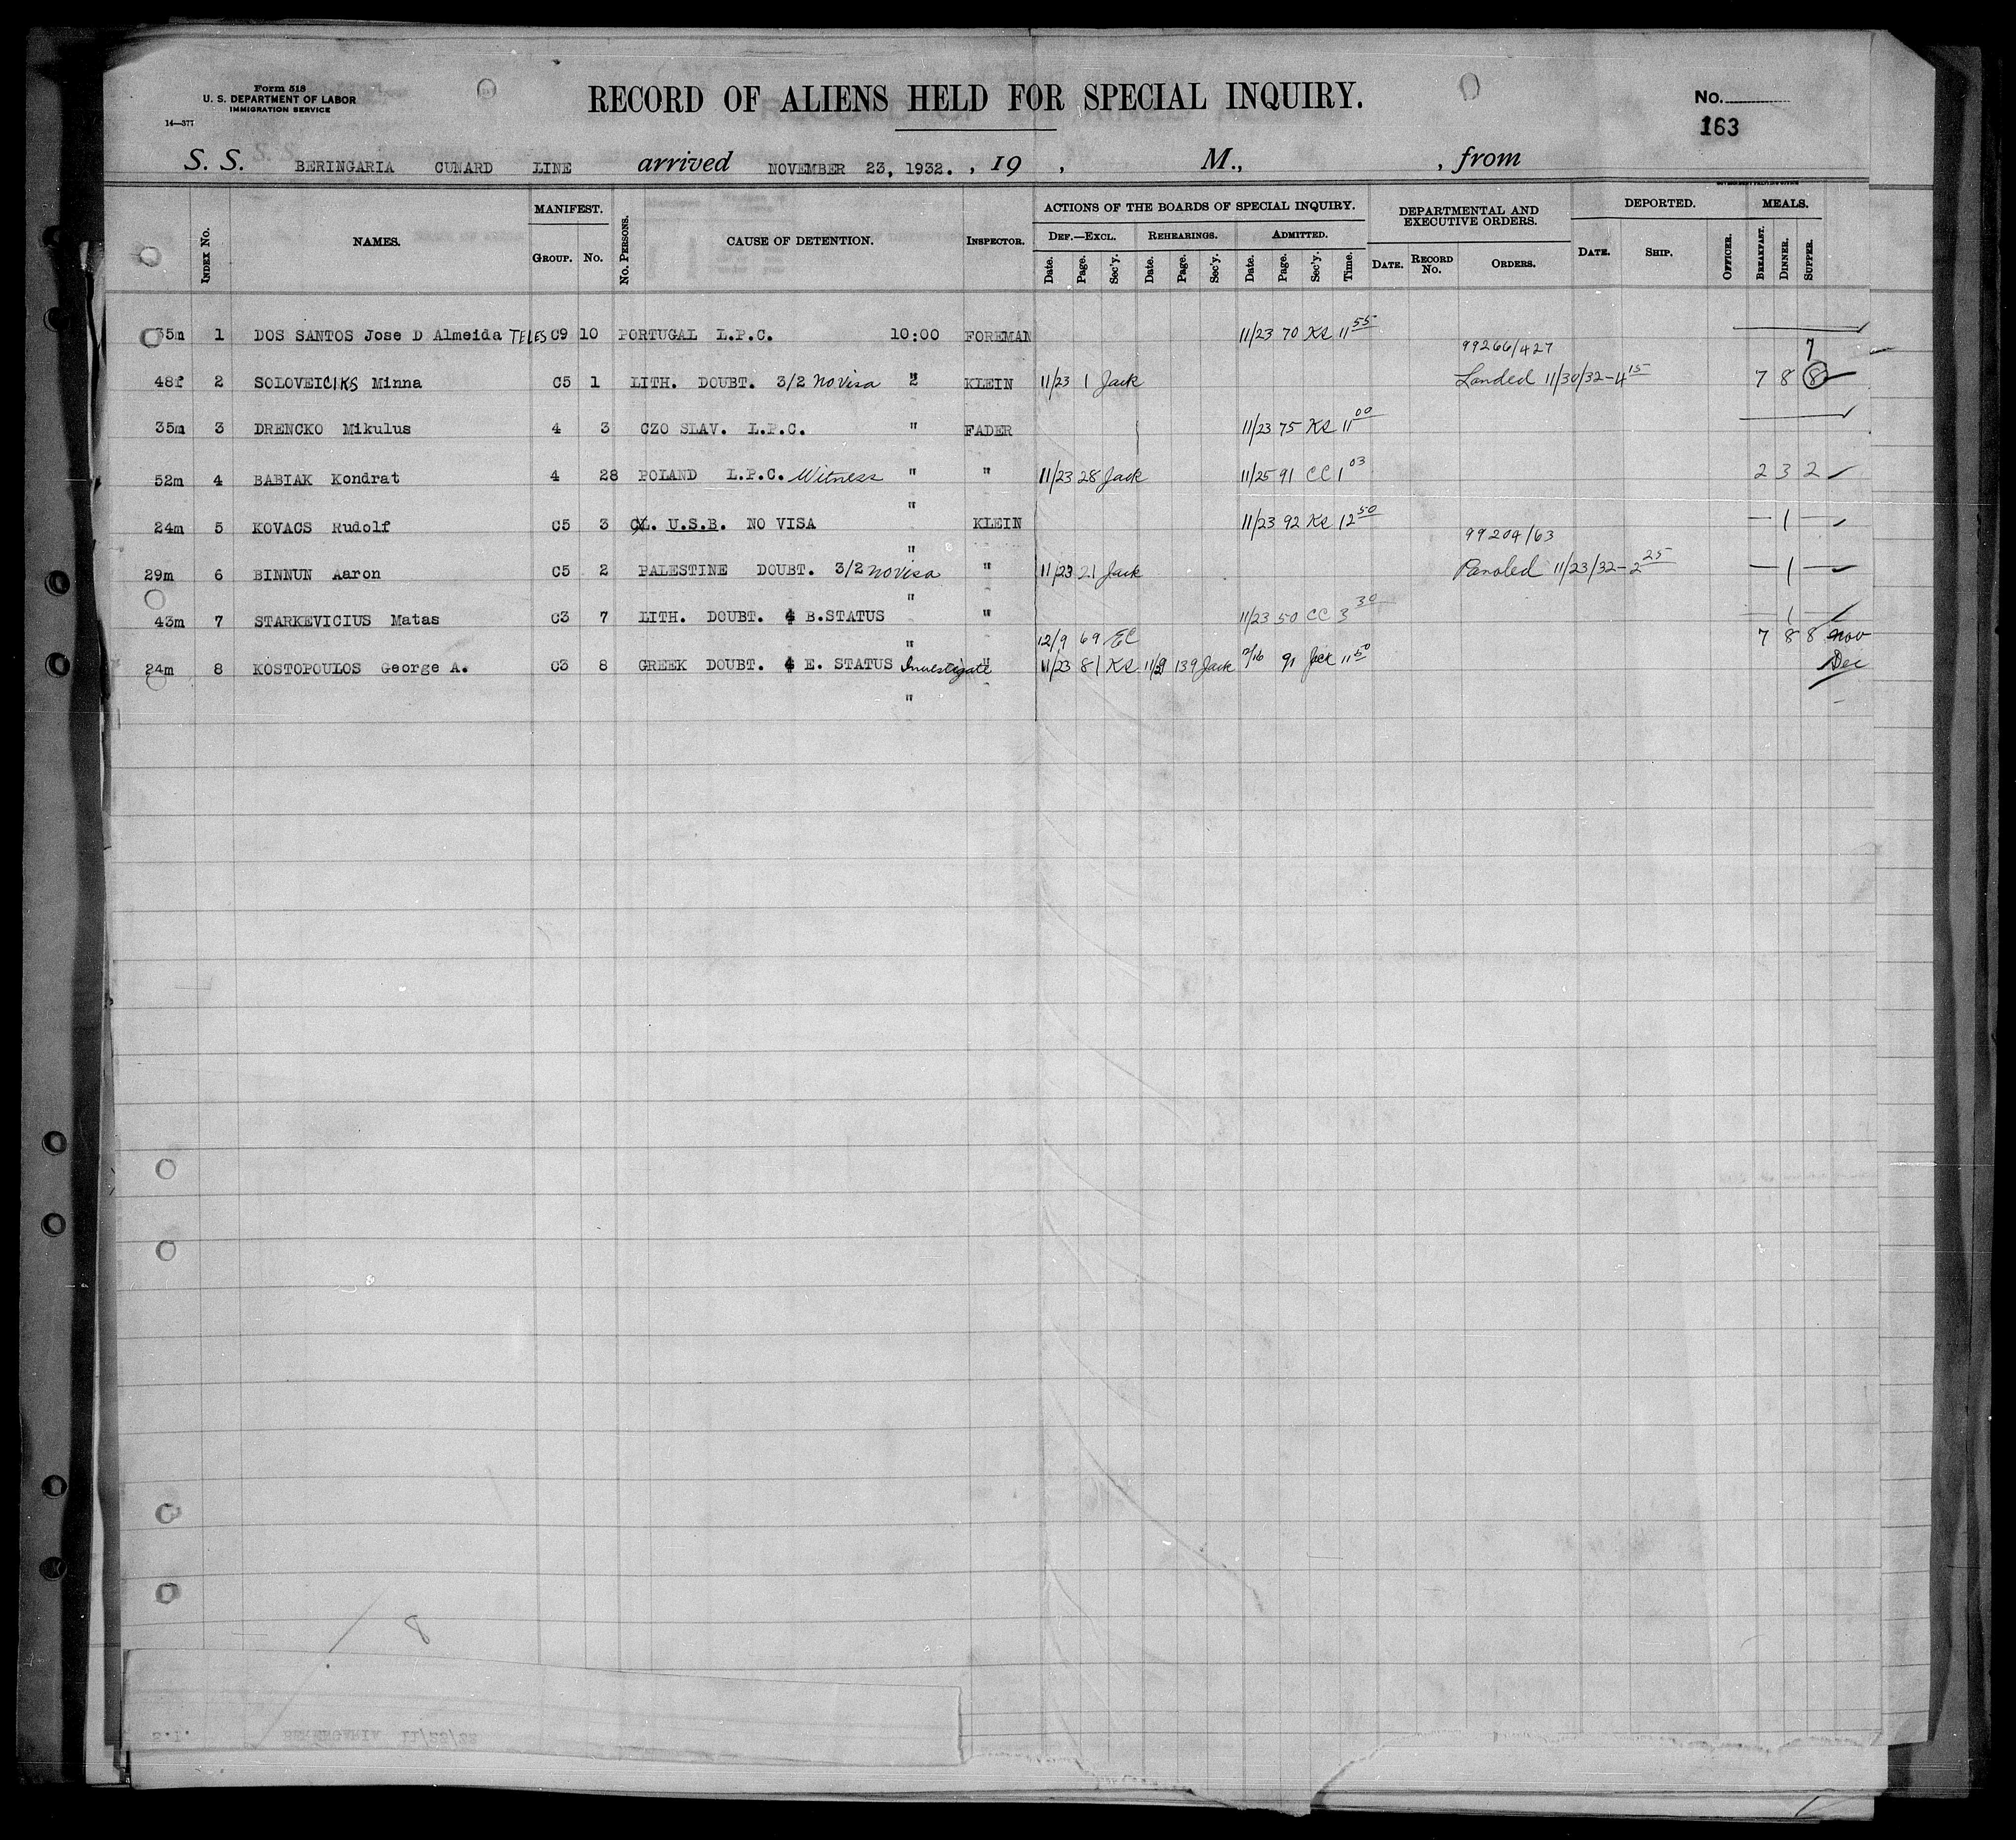 Form 518
U. S. DEPARTMENT OF LABOR
IMMIGRATION SERVICE
14—377
RECORD OF ALIENS HELD FOR SPECIAL INQUIRY.
No.
163
S. S. BERINGARIA CUNARD LINE arrived NOVEMBER 23, 1932. , 19 , M., , from
GOVERNMENT PRINTING OFFICE
INDEX No. NAMES. MANIFEST. GROUP. No. No. PERSONS. CAUSE OF DETENTION. INSPECTOR. ACTIONS OF THE BOARDS OF SPECIAL INQUIRY. DEF.—EXCL. Date. Page. Sec'y. REHEARINGS. Date. Page. Sec'y. ADMITTED. Date. Page. Sec'y. Time. DEPARTMENTAL AND EXECUTIVE ORDERS. DATE. RECORD No. ORDERS. DEPORTED. DATE. SHIP. OFFICER. MEALS. BREAKFAST. DINNER. SUPPER.
35m 1 DOS SANTOS Jose D Almeida TELES C9 10 PORTUGAL L.P.C. 10:00 FOREMAN 11/23 70 KS 11 55
99266/427 7
48f 2 SOLOVEICIKS Minna C5 1 LITH. DOUBT. 3/2 no visa " KLEIN 11/23 1 Jack Landed 11/30/32-4 15 7 8 8
35m 3 DRENCKO Mikulus 4 3 CZO SLAV. L.P.C. " FADER 11/23 75 KS 11 00
52m 4 BABIAK Kondrat 4 28 POLAND L.P.C. Witness " " 11/23 28 Jack 11/25 91 CC 1 03 2 3 2
"
24m 5 KOVACS Rudolf C5 3 CL. U.S.B. NO VISA KLEIN 11/23 92 KS 12 50 — 1 —
99204/63
"
29m 6 BINNUN Aaron C5 2 PALESTINE DOUBT. 3/2 no visa " 11/23 21 Jack Paroled 11/23/32-2 25 — 1 —
"
43m 7 STARKEVICIUS Matas C3 7 LITH. DOUBT. 4 B.STATUS " 11/23 50 CC 3 30 — 1 —
" 12/9 69 EC 7 8 8 nov
24m 8 KOSTOPOULOS George A. C3 8 GREEK DOUBT. 4 E. STATUS Investigate " 11/23 81 KS 139 Jack 12/16 91 Jack 11 50 Dec
"
S.I. BERENGARIA 11/23/32